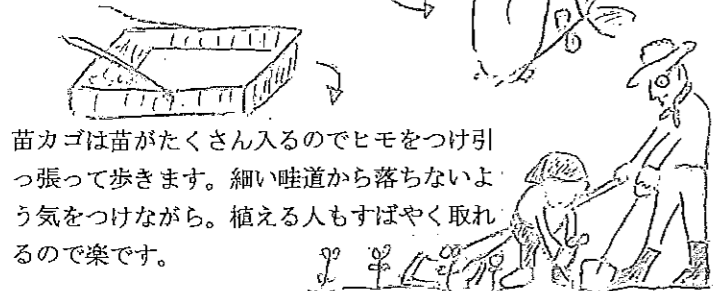 苗カゴは苗がたくさん入るのでヒモをつけ引
っ張って歩きます。細い畦道から落ちないよ
う気をつけながら。植える人もすばやく取れ
るので楽です。